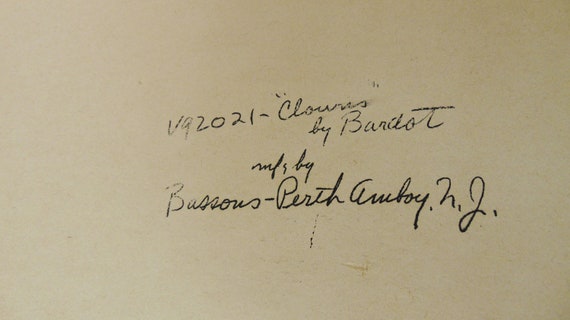 V92021-"Clowns"
by Bardot
mfg by
Bassons-Perth Amboy, N.J.